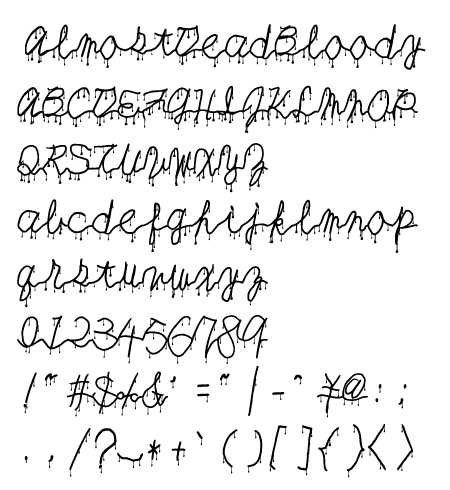 AlmostDeadBloody
ABCDEFGHIJKLMNOP
QRSTUVWXYZ
abcdefghijklmnop
qrstuvwxyz
0123456789
!"#$%&'="|-^¥@:;
,./?_*+`()[]{}<>